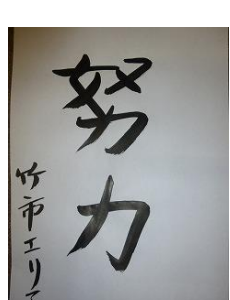 努力
竹市エリ